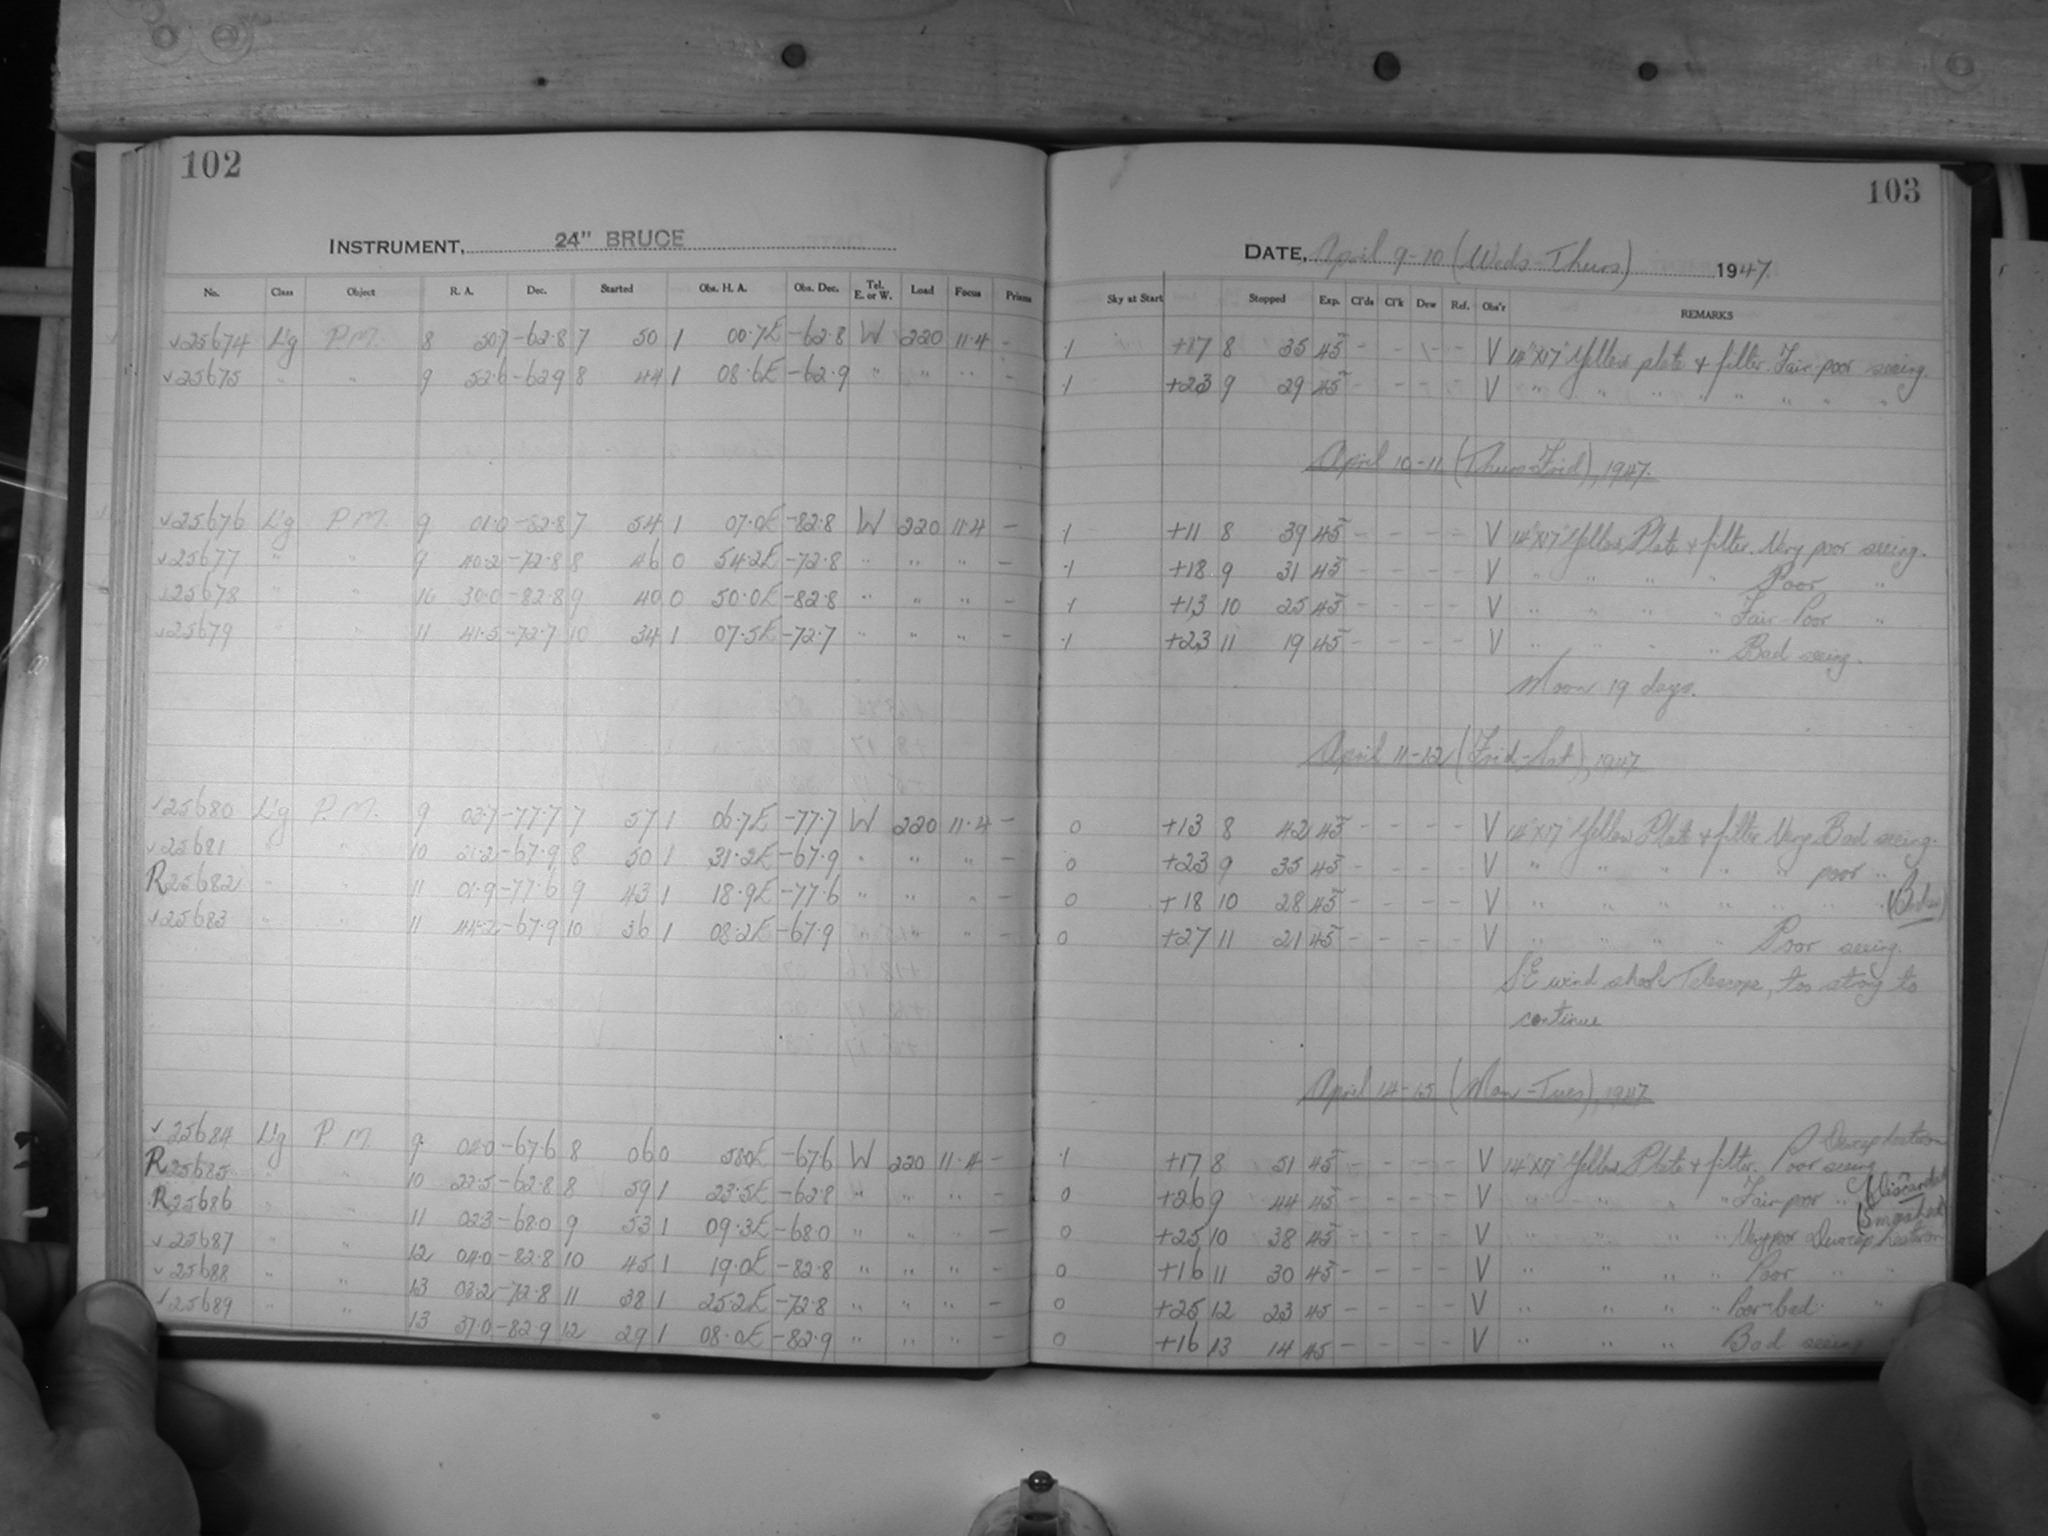 102
INSTRUMENT, 24" BRUCE
No. Class Object R. A. Dec. Started Obs. H. A. Obs. Dec. Tel. E. or W. Load Focus Prisms
√25674 L'g P.M. 8 50.7 -62.8 7 50 1 00.7E -62.8 W 220 11.4 -
√25675 " " 9 52.6 -62.9 8 44 1 08.6E -62.9 " " " -
√25676 L'g P.M. 9 01.0 -82.8 7 54 1 07.0E -82.8 W 220 11.4 -
√25677 " " 9 40.2 -72.8 8 46 0 54.2E -72.8 " " " -
√25678 " " 10 30.0 -82.8 9 40 0 50.0E -82.8 " " " -
√25679 " " 11 41.5 -72.7 10 34 1 07.5E -72.7 " " " -
√25680 L'g P.M. 9 03.7 -77.7 7 57 1 06.7E -77.7 W 220 11.4 -
√25681 " " 10 21.2 -67.9 8 50 1 31.2E -67.9 " " " -
R25682 " " 11 01.9 -77.6 9 43 1 18.9E -77.6 " " " -
√25683 " " 11 44.2 -67.9 10 36 1 08.2E -67.9 " " " -
√25684 L'g P.M. 9 02.0 -67.6 8 06 0 58.0E -67.6 W 220 11.4 -
R25685 " " 10 22.5 -62.8 8 59 1 23.5E -62.8 " " " -
R25686 " " 11 02.3 -68.0 9 53 1 09.3E -68.0 " " " -
√25687 " " 12 04.0 -82.8 10 45 1 19.0E -82.8 " " " -
√25688 " " 13 03.2 -72.8 11 38 1 25.2E -72.8 " " " -
√25689 " " 13 37.0 -82.9 12 29 1 08.0E -82.9 " " " -
103
DATE, April 9-10 (Weds-Thurs) 1947.
Sky at Start Stopped Exp. Cl'ds Cl'k Dew Ref. Obs'r REMARKS
1 +17 8 35 45 - - - - V 14"X17" Yellow plate & filter. Fair-poor seeing.
1 +23 9 29 45 - - - - V " " " " " " " "
April 10-11 (Thurs-Frid), 1947.
1 +11 8 39 45 - - - - V 14"X17" Yellow Plate & filter. Very poor seeing.
1 +18 9 31 45 - - - - V " " " " Poor "
1 +13 10 25 45 - - - - V " " " " Fair-Poor "
1 +23 11 19 45 - - - - V " " " " Bad seeing.
Moon 19 days.
April 11-12 (Frid-Sat), 1947
0 +13 8 42 45 - - - - V 14"X17" Yellow Plate & filter Very Bad seeing.
0 +23 9 35 45 - - - - V " " " " " poor "
0 +18 10 28 45 - - - - V " " " " " " "
0 +27 11 21 45 - - - - V " " " " Poor seeing.
S.E wind shook Telescope, too strong to
continue
April 14-15 (Mon-Tues), 1947
1 +17 8 51 45 - - - - V 14"X17" Yellow Plate & filter. Poor seeing
0 +26 9 44 45 - - - - V " " " " Fair-poor " (Discarded
0 +25 10 38 45 - - - - V " " " " Very poor (Smashed)
0 +16 11 30 45 - - - - V " " " " Poor " "
0 +25 12 23 45 - - - - V " " " " Poor-bad "
0 +16 13 14 45 - - - - V " " " Bad seeing